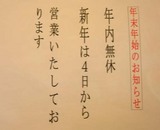 年末年始のお知らせ
年内無休
新年は4日から
営業いたしてお
ります